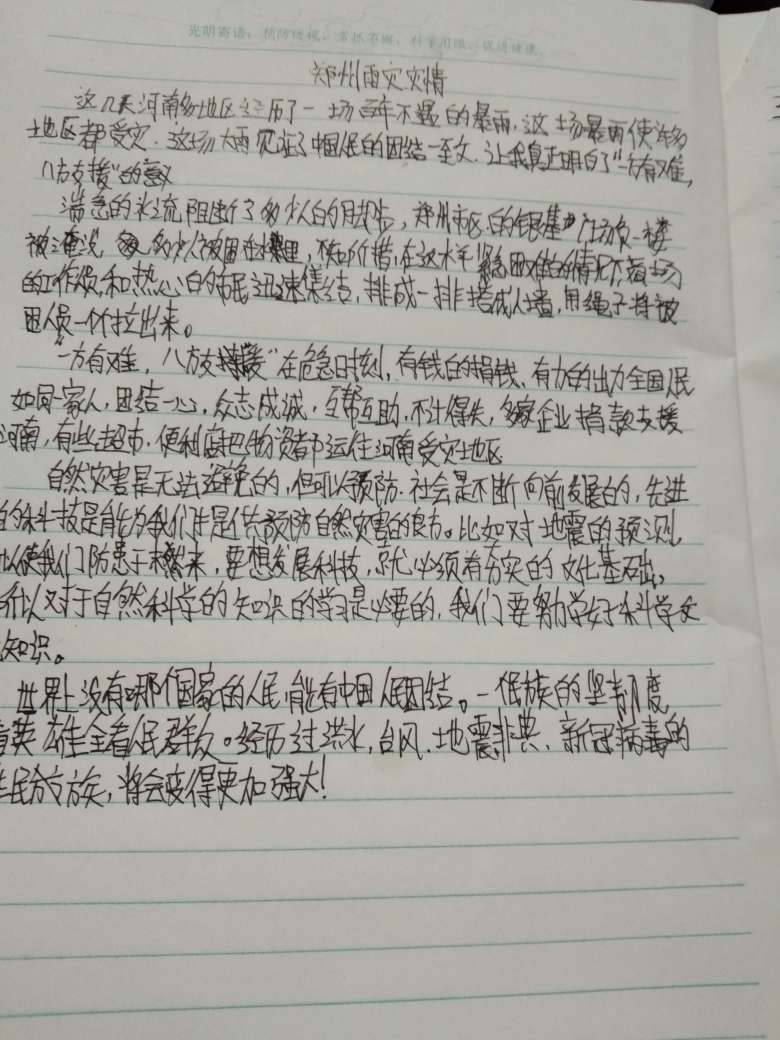 光明寄语：预防近视，常抓不懈，科学用眼，促进健康。
郑州雨灾灾情
这几天河南多地区经历了一场百年不遇的暴雨，这场暴雨使许多
地区都受灾．这场大雨见证了中国人民的团结一至文．让我真正明白了"一方有难，
八方支援"的意义
湍急的水流阻断了多少人的脚步，郑州市区的银基广场负一楼
被淹没 多少人被困在楼里，不知所措，在这水平紧急困难的情况下，商场
的工作人员和热心的市民迅速集结，排成一排搭成人墙，用绳子将被
困人员一个个拉出来。
"一方有难，八方支援"在危急时刻，有钱的捐钱、有力的出力全国人民
如同一家人，团结一心，众志成诚，互帮互助，不计得失，多家企业捐款支援
河南，有些超市．便利店把物资都运往河南受灾地区
自然灾害是无法避免的，但可以预防．社会是不断向前发展的，先进
的科技是能为我们提供预防自然灾害的良方。比如对地震的预测，
以使我们防患于未燃来，要想发展科技，就必须有夯实的文化基础。
所以对于自然科学的知识的学习是必要的，我们要努力学好科学文
知识。
世界上没有哪个国家的人民，能有中国人民团结。一个民族的坚韧度
英雄全看人民群众。经历过洪水，台风．地震非典、新冠病毒的
民族，将会变得更加强大！